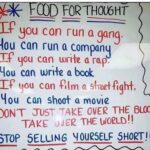 FOOD FOR THOUGHT
If you can run a gang.
You can run a company
If you can write a rap.
You can write a book
If you can film a street fight.
You can shoot a movie
DON'T JUST TAKE OVER THE BLOC
TAKE OVER THE WORLD!!
STOP SELLING YOURSELF SHORT!